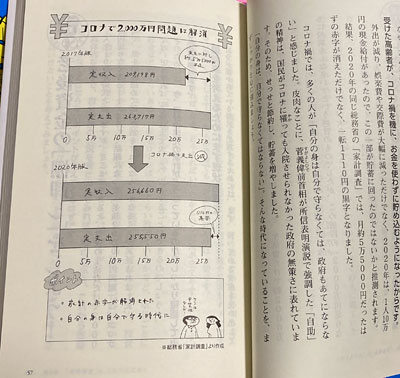 受けた高齢者が、コロナ禍を機に、お金を使わずに貯め込むようになったからです。
外出が減り、娯楽費や交際費が大幅に減っただけでなく、2020年は、1人10万
円の現金給付があったので、この一部が貯蓄に回ったのではないかと推測されます。
結果、2020年の同じ総務省の「家計調査」では、月約5万5000円だったは
ずの赤字が消えただけでなく、一転1110円の黒字となりました。
コロナ禍では、多くの人が「自分の身は自分で守らなくては。政府もあてにならな
い」と感じました。皮肉なことに、菅義偉前首相が所信表明演説で強調した「自助」
の精神は、国民がコロナに罹っても入院させられなかった政府の無策さに表れていま
そのため、せっせと節約し、貯蓄を増やしました。
「自分の身は、自分で守らなくてはならない」。そんな時代になっていることを、ま
コロナで2,000万円問題は解消
2017年版
実収入 209,198円
実支出 263,717円
0 5万 10万 15万 20万 25万
コロナ禍で支出減
2020年版
実収入 256,660円
実支出 255,550円
0 5万 10万 15万 20万 25万
ポイント
家計の赤字が解消された
自分の身は自分で守る時代に
※総務省「家計調査」より作成
57